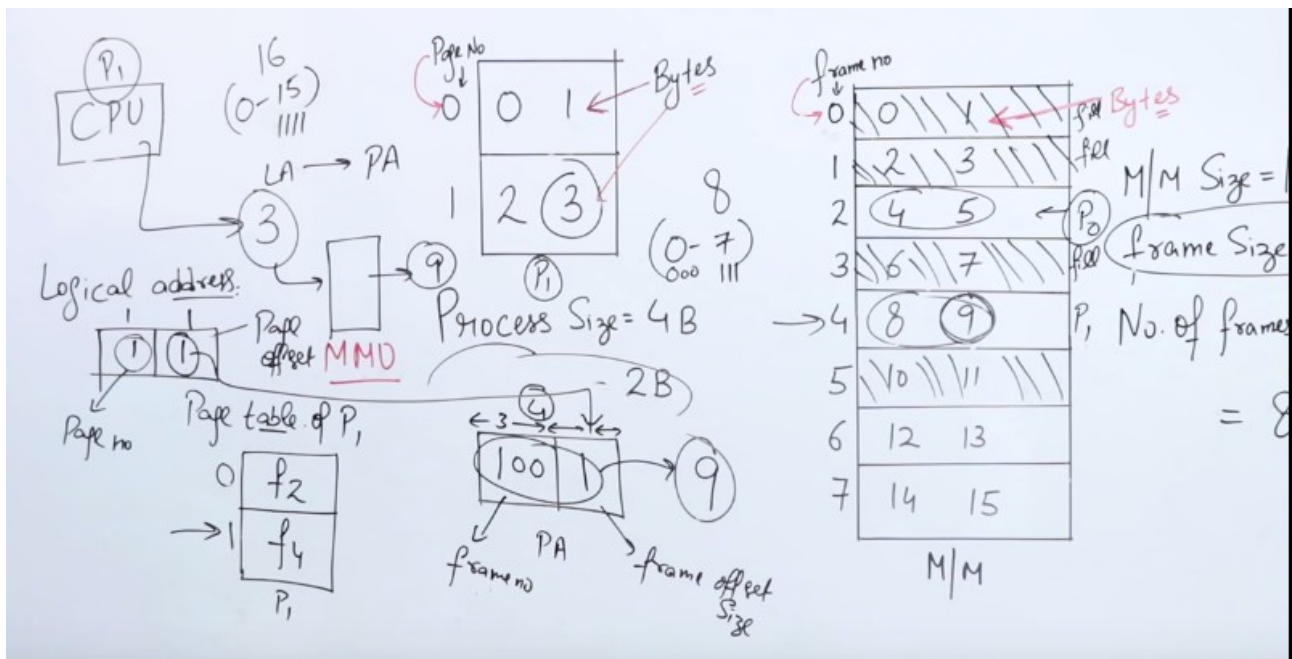 P1
CPU
16
(0-15)
1111
LA → PA
3
9
Logical address.
1 1
1 1
Page offset
MMU
Page no
Page table of P1
0 f2
→1 f4
P1
Page No
0 0 1
1 2 3
Bytes
P1
8
(0-7)
000 111
Process Size = 4B
- 2B
4
←3→
100 1
9
frame no
PA
frame offset Size
frame no
0 0 1 fill
Bytes
1 2 3 fill
2 4 5 ← P0
3 6 7 fill
→4 8 9 P1
5 10 11
6 12 13
7 14 15
M/M
M/M Size = 1
frame Size
No. of frames
= 8